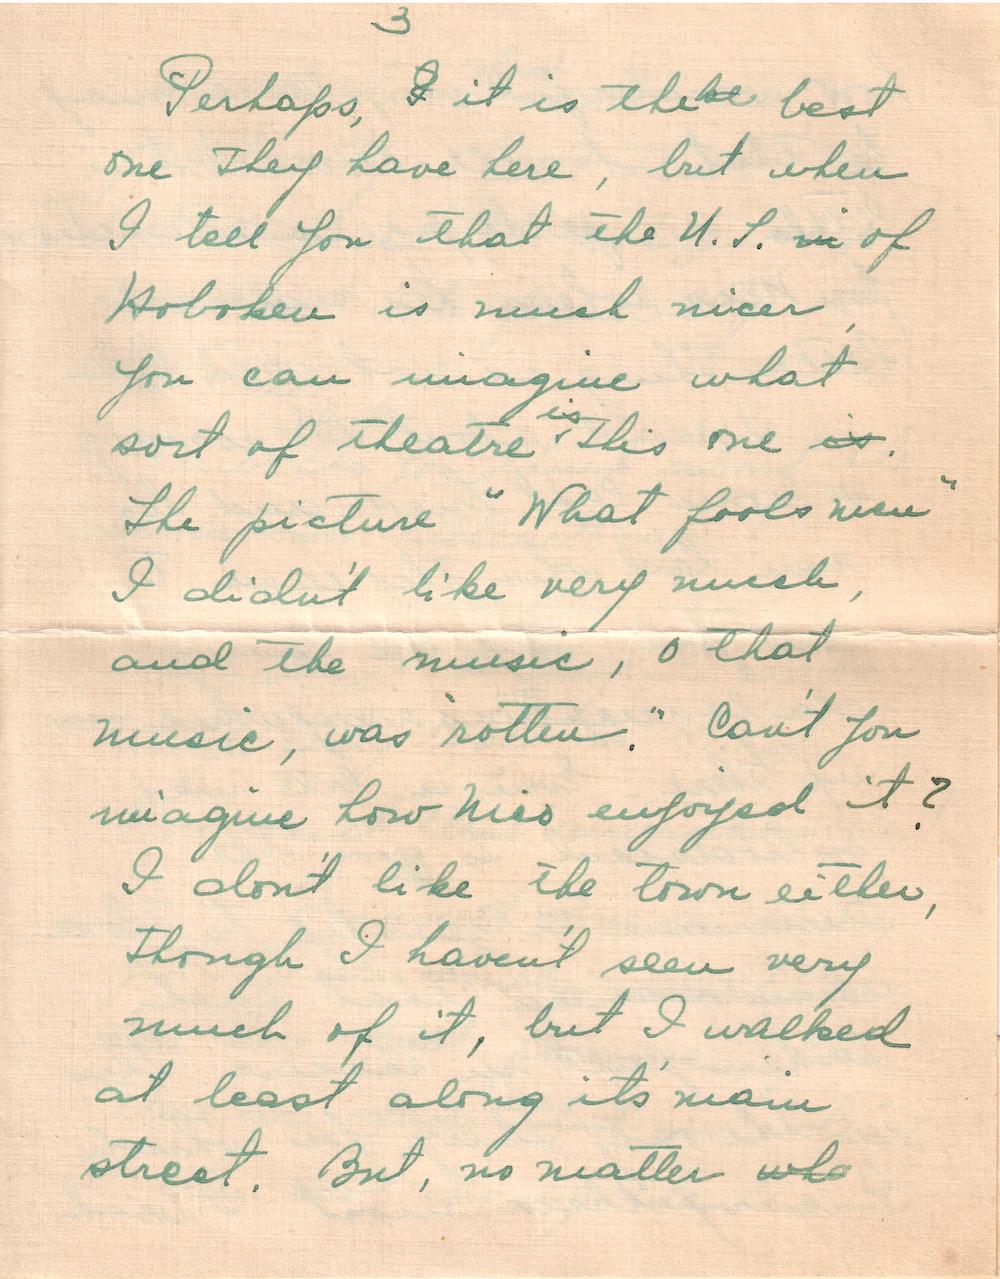 3
Perhaps, it is the best
one they have here, but when
I tell you that the U.S. of
Hoboken is much nicer,
you can imagine what
sort of theatre is this one.
The picture "What fools men"
I didn't like very much,
and the music, o that
music, was "rotten." Can't you
imagine how Nico enjoyed it?
I don't like the town either,
though I haven't seen very
much of it, but I walked
at least along it's main
street. But, no matter